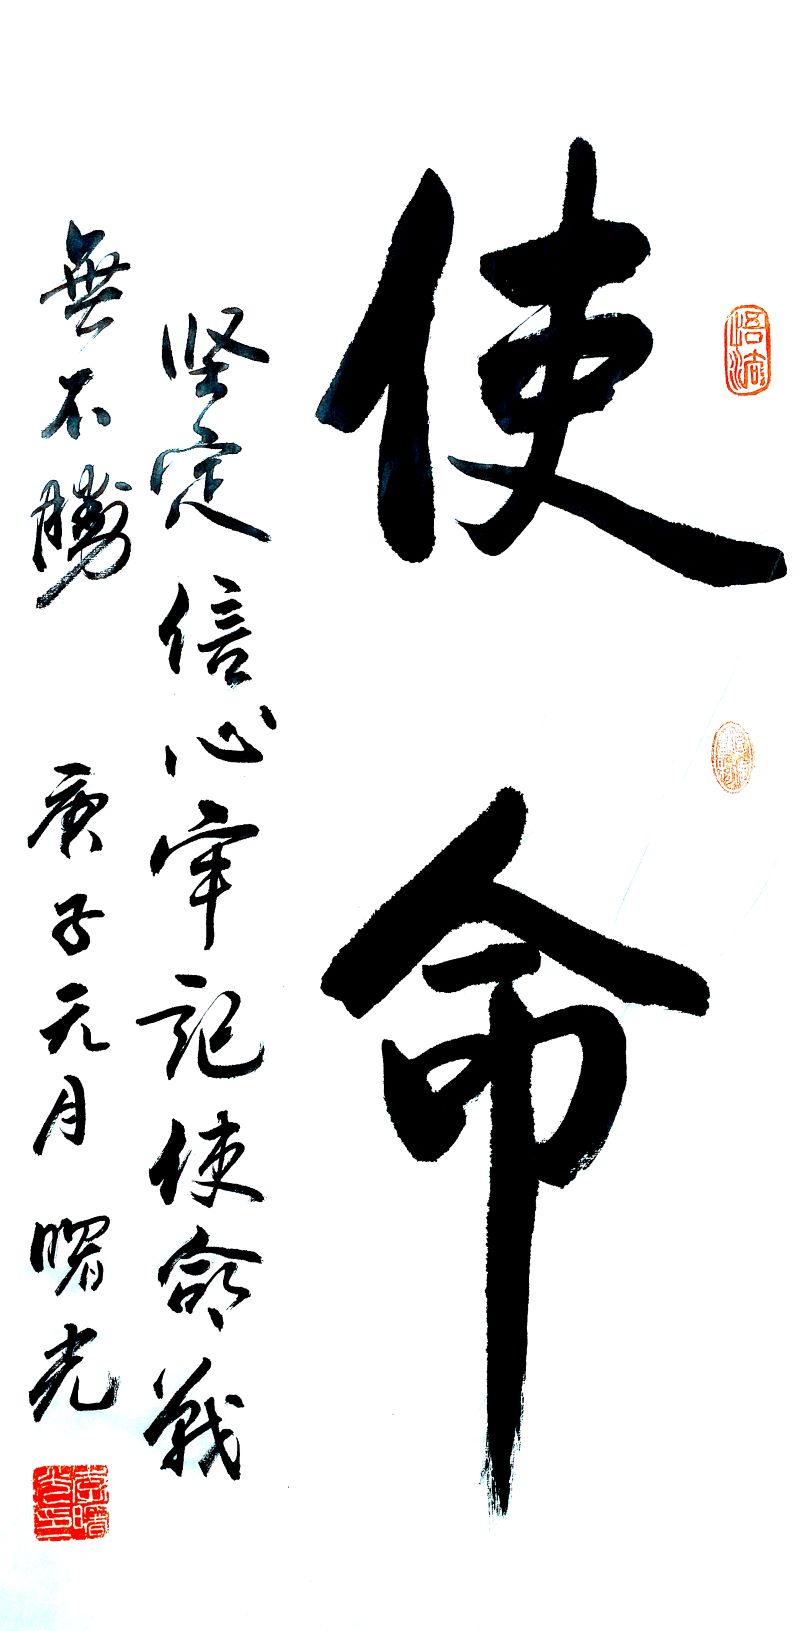 使命
坚定信心牢记使命戰
無不勝 庚子元月 曙光